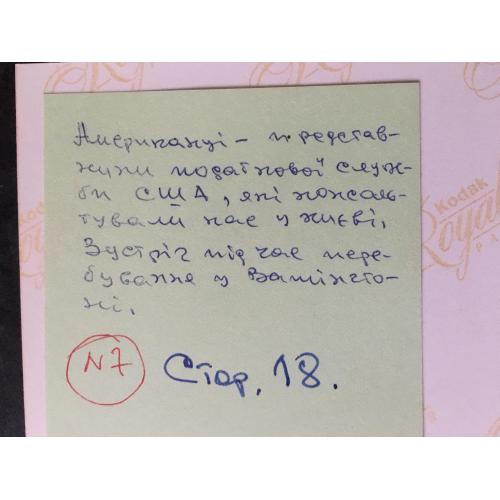 Американці – представ-
ники податкової служ-
би США, які консуль-
тували нас у Києві.
Зустріч під час пере-
бування у Вашінгто-
ні.
N7
Стор. 18.
Kodak
Royal